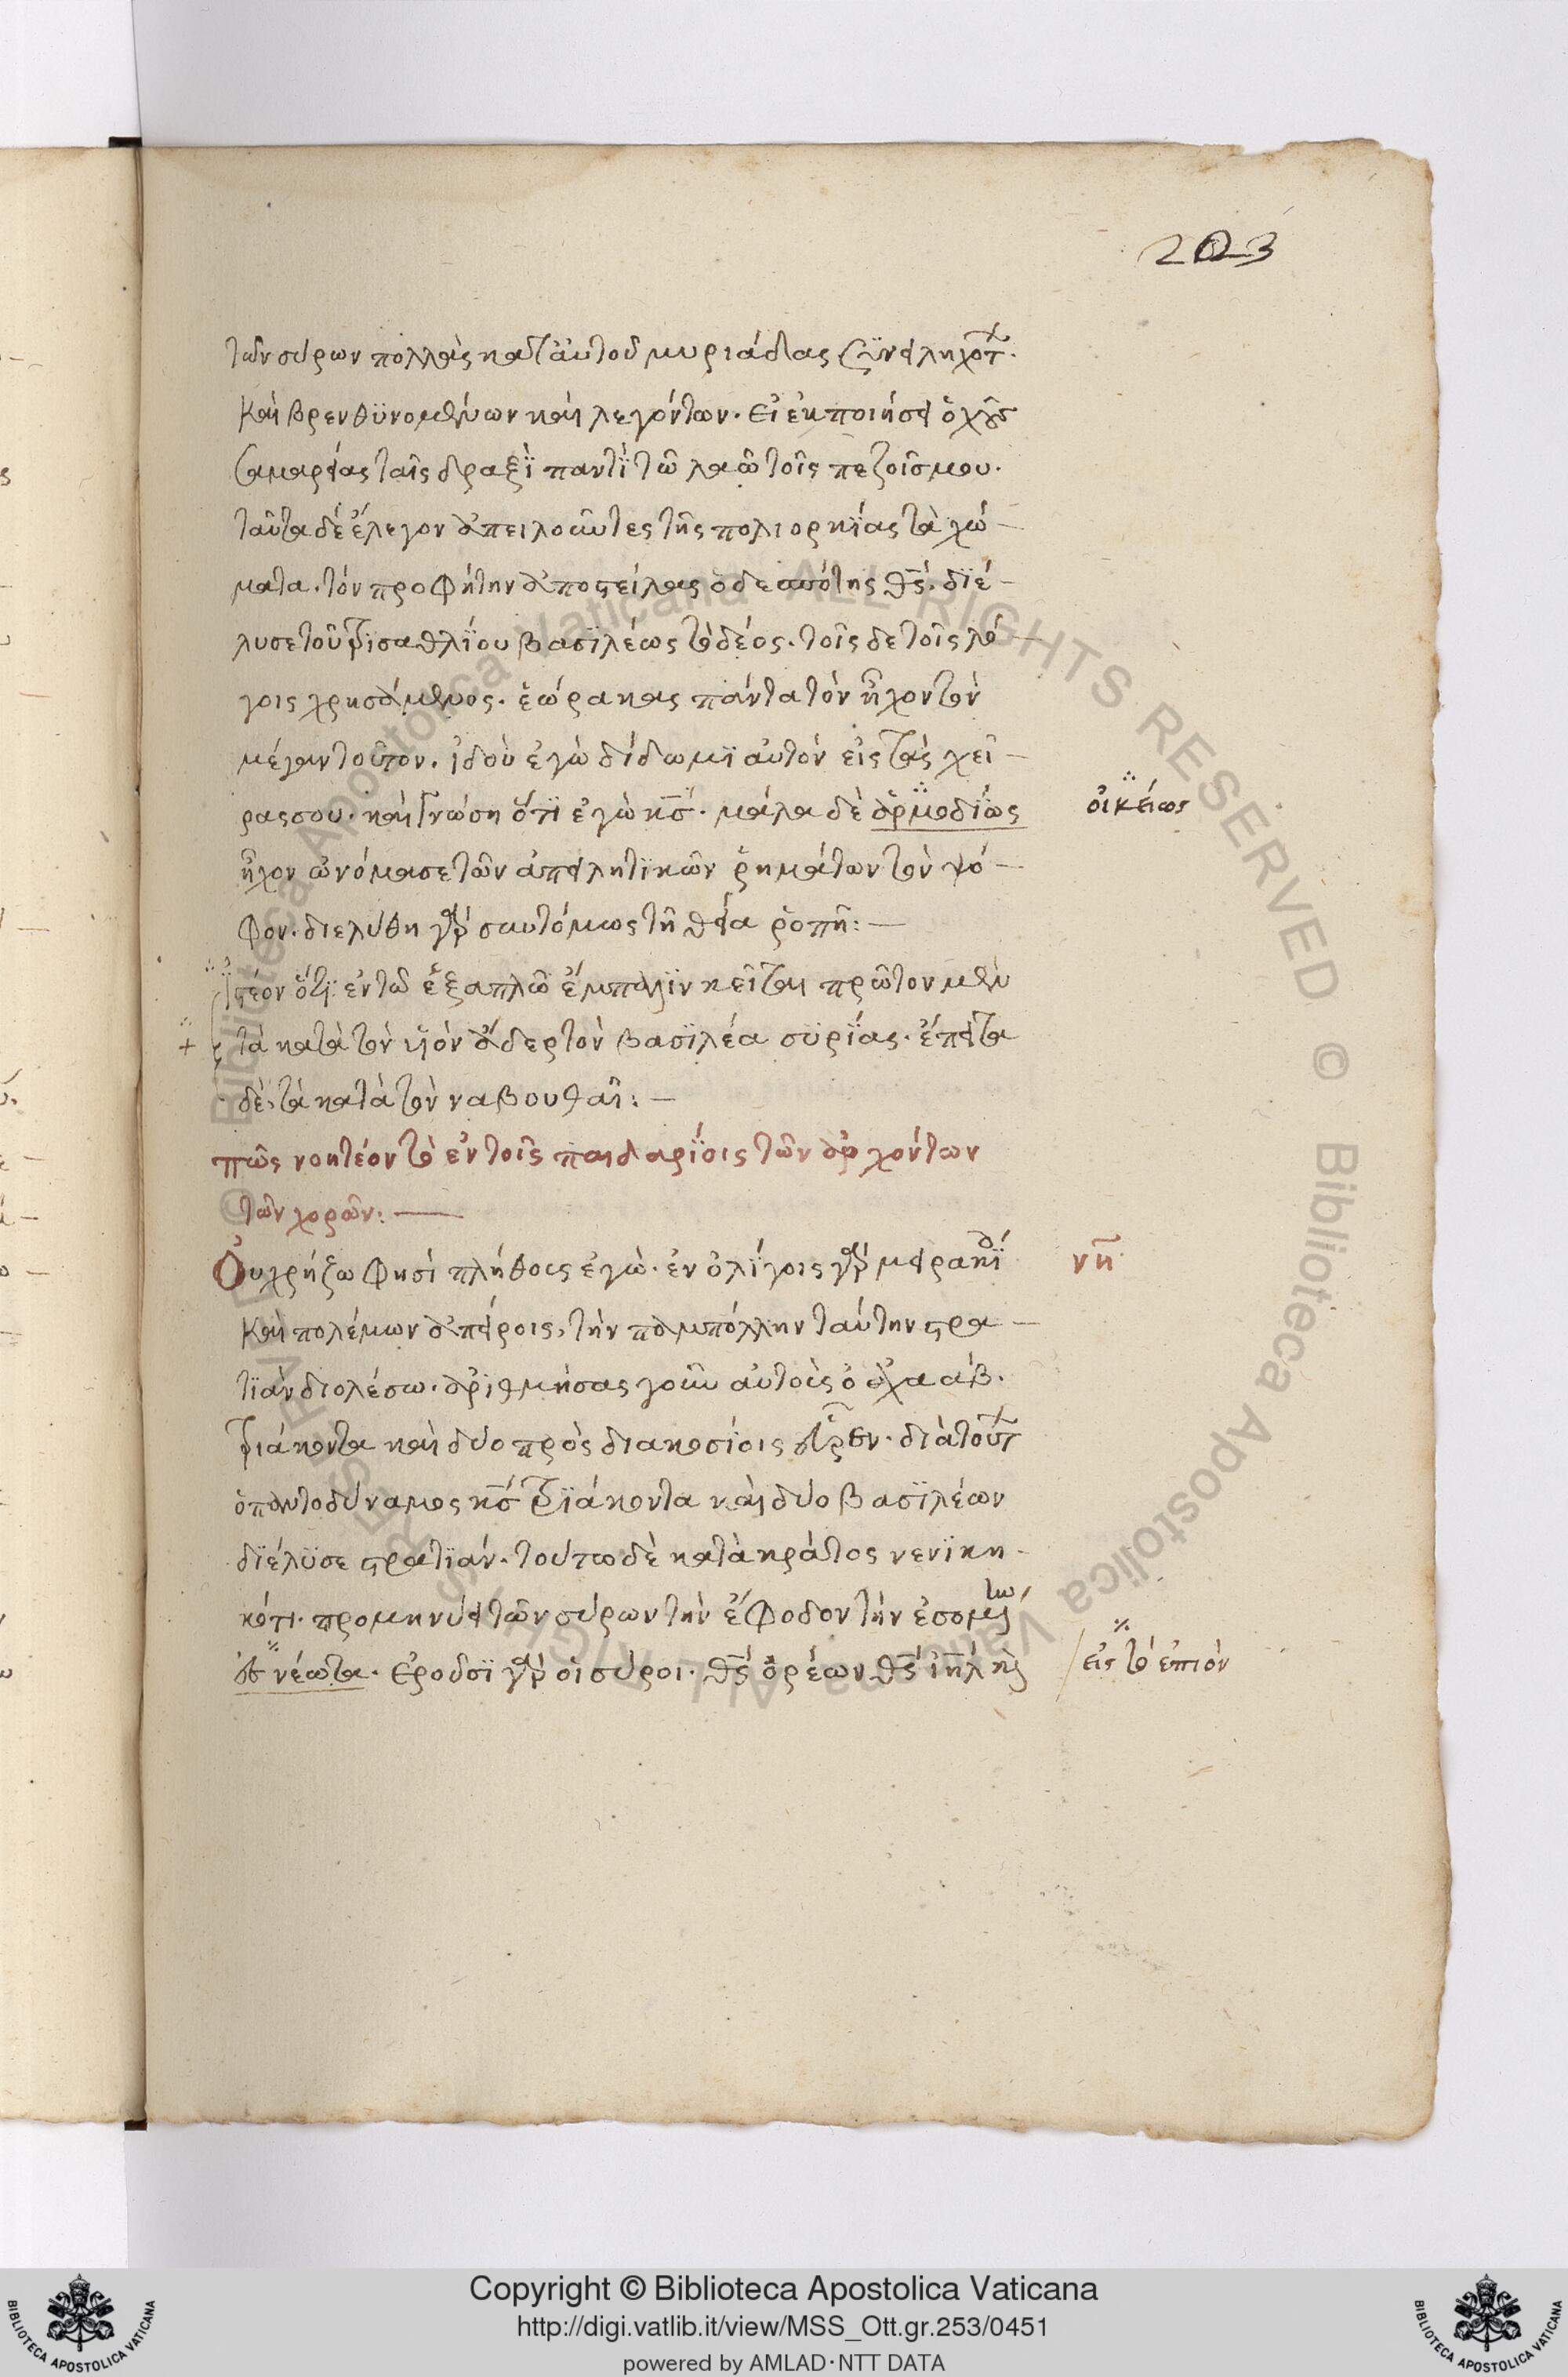 223
τῶν σύρων πολλὰς κατ' αὐτοῦ μυριάδας συνειληχότ.
καὶ βρενθϋνομένων καὶ λεγόντων. εἰ ἐκποιήσει ὁ χοῦς
σαμαρείας ταῖς δραξὶ παντὶ τῶ λαῶ τοῖς πεζοῖς μου.
ταῦτα δὲ ἔλεγον ἀπειλοῦντες τῆς πολιορκίας τὰ χώ-
ματα. τὸν προφήτην ἀποστείλας ὁ δεσπότης θς. διέ-
λυσε τοῦ τρισαθλίου βασϊλέως τὸ δέος. τοῖς δε τοῖς λό-
γοις χρησάμενος. ἑώρακας πάντα τὸν ἦχον τὸν
μέγαν τοῦτον. ἰδοὺ ἐγὼ δίδωμϊ αὐτὸν εἰς τὰς χεῖ-
ρας σου. καὶ γνώση ὅτι ἐγὼ κς. μάλα δὲ ἁρμοδίως
οἰκείως
ἦχον ὠνόμασε τῶν ἀπειλητικῶν ῥημάτων τὸν ψό-
φον. διελύθη γὰρ συντόμως τῆ θεία ῥοπῆ:—
ἰστέον ὅτι ἐν τῶ ἑξαπλῶ ἔμπαλϊν κεῖται πρῶτον μὲν
τὰ κατὰ τὸν υἱὸν ἄδερ τὸν βασϊλέα συρίας. ἔπειτα
δὲ, τὰ κατὰ τὸν ναβουθαῖ:—
πῶς νοητέον τὸ ἐν τοῖς παιδαρίοις τῶν ἀρχόντων
τῶν χορῶν:—
Οὐ χρήζω φησὶ πλήθους ἐγὼ. ἐν ὀλίγοις γὰρ μειρακί
νη
καὶ πολέμων ἀπείροις, τὴν παμπόλλην ταύτην στρα-
τιὰν διολέσω. ἀριθμήσας γοῦν αὐτοὺς ὁ ἀχαάβ.
τριάκοντα καὶ δύο πρὸς διακοσίοις εὗρεν. διὰ τούτ
ὁ παντοδύναμος κς τριάκοντα καὶ δύο βασϊλέων
διέλϋσε στρατϊάν. τούτω δὲ κατὰ κράτος νενϊκη-
κότι. προμηνύει τῶν σύρων τὴν ἔφοδον τὴν ἐσομέν
ἐς νέωτα. ἐροῦσϊ γὰρ οἱ σύροι. θς ὀρέων θς ἰηλ καὶ
εἰς τὸ ἐπιὸν
Copyright © Biblioteca Apostolica Vaticana
http://digi.vatlib.it/view/MSS_Ott.gr.253/0451
powered by AMLAD·NTT DATA
BIBLIOTECA APOSTOLICA VATICANA
BIBLIOTECA APOSTOLICA VATICANA